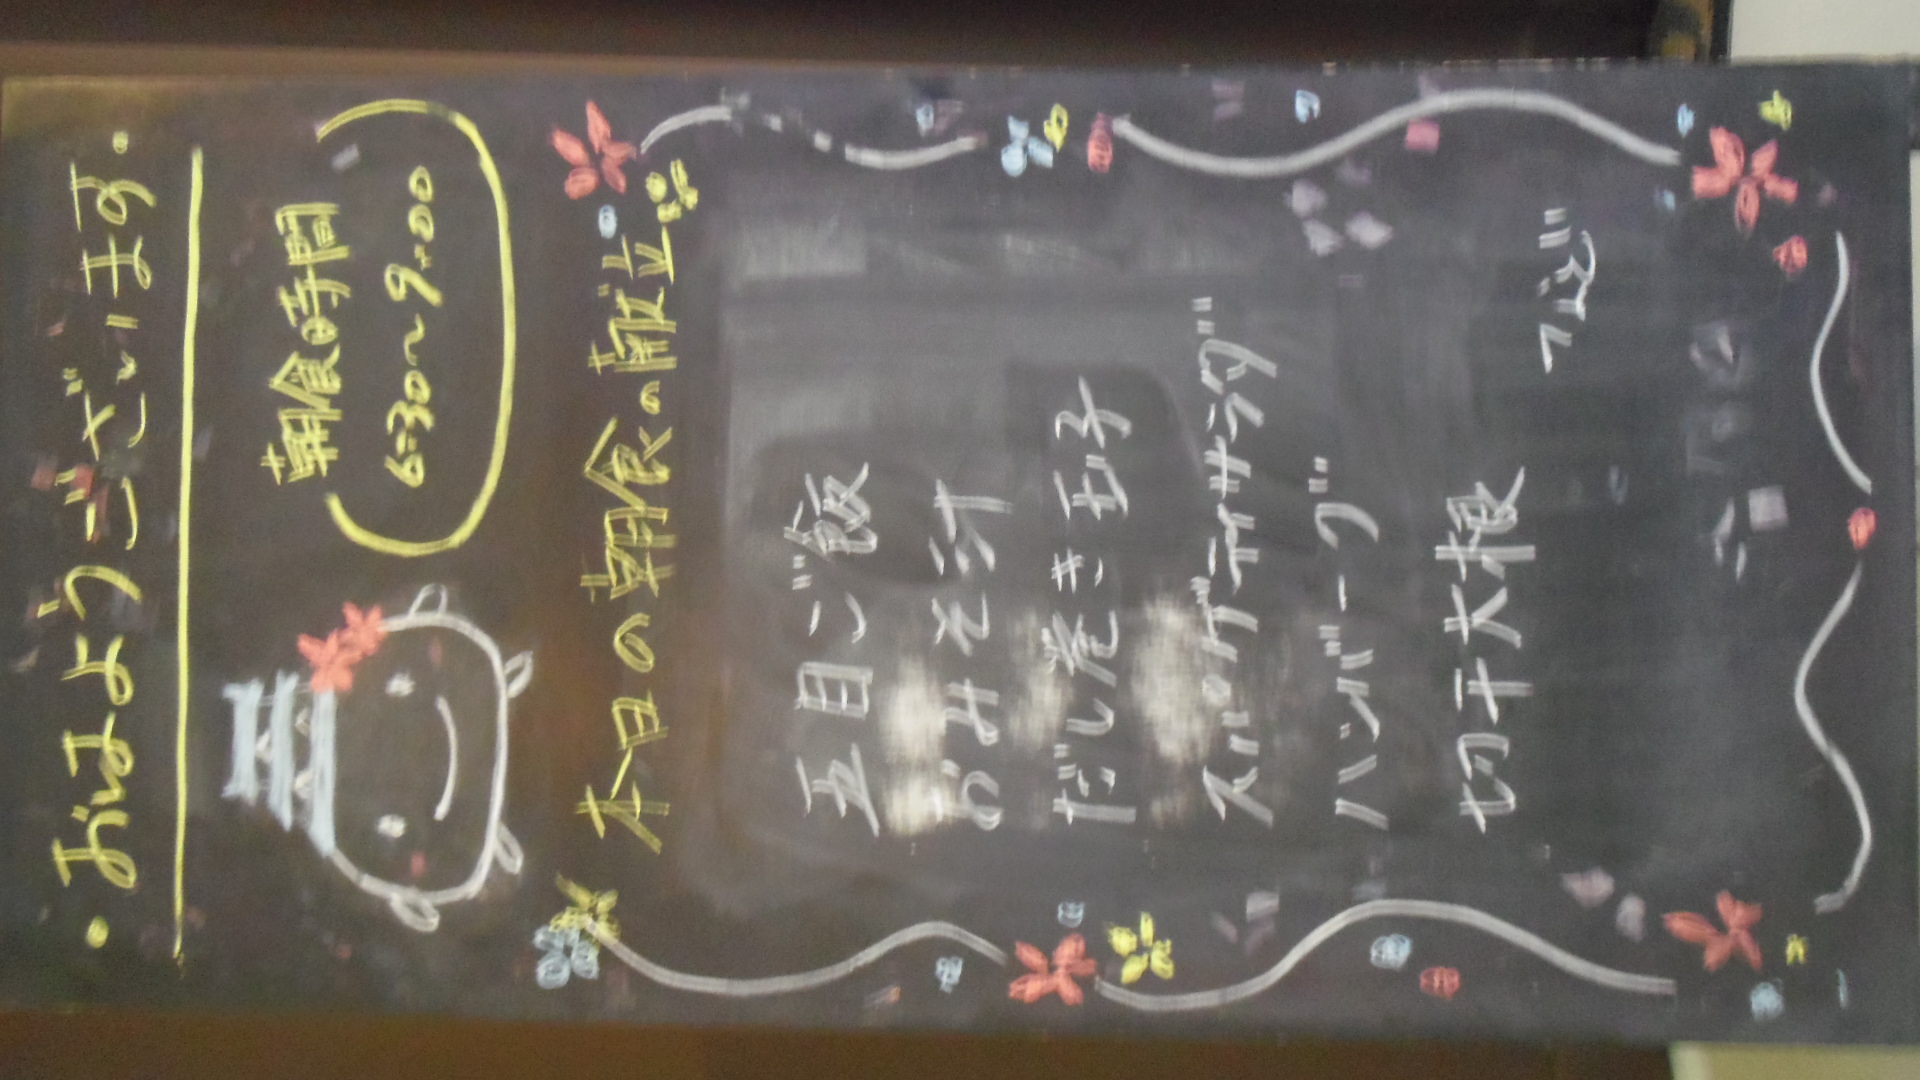 ・おはようございます・
朝食の時間
6:30〜9:00
本日の朝食の献立
五目ご飯
おみそ汁
だし巻き玉子
スパゲティサラダ
ハンバーグ
切干大根
など